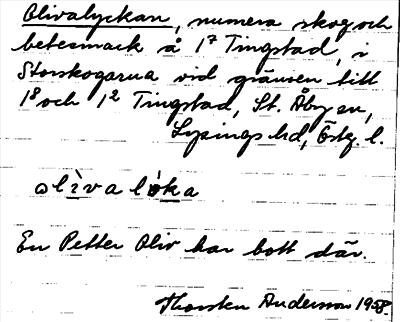 Olivalyckan, numera skog och
betesmark å 1⁷ Tingstad, i
Storskogarna vid gränsen till
1⁸ och 1² Tingstad, St. Åby sn,
Lysings hd, Östg. l.
olìva l`ỳka
En Petter Oliv har bott där.
Thorsten Andersson 1958.